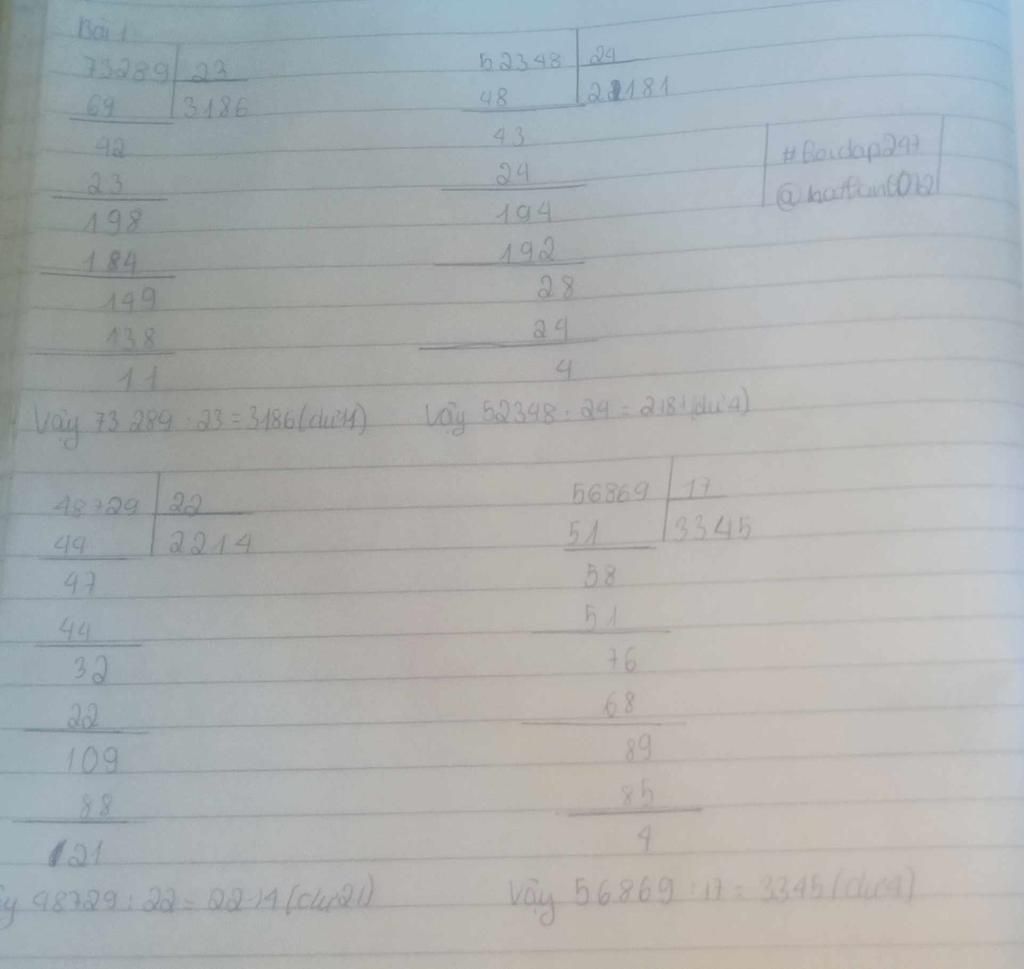 Bài 1
73289 23
69 3186
42
23
198
184
149
138
11
Vậy 73 289 : 23 = 3186 (dư 11)
52348 24
48 2181
43
24
194
192
28
24
4
Vậy 52348 : 24 = 2181 (dư 4)
48729 22
44 2214
47
44
32
22
109
88
21
48729 : 22 = 2214 (dư 21)
56869 17
51 3345
58
51
76
68
89
85
4
Vậy 56869 : 17 = 3345 (dư 4)